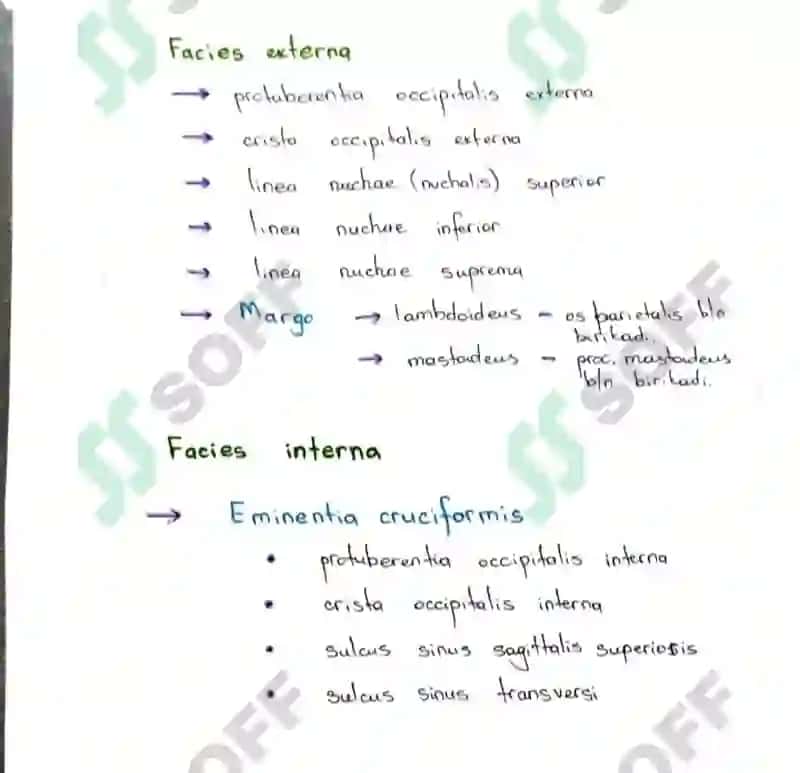 Facies externa
→ protuberentia occipitalis externa
→ crista occipitalis externa
→ linea nuchae (nuchalis) superior
→ linea nuchae inferior
→ linea nuchae suprema
→ Margo → lambdoideus - os parietalis bln
birikadi.
→ mastoideus - proc. mastoideus
bln birikadi.
Facies interna
→ Eminentia cruciformis
• protuberentia occipitalis interna
• crista occipitalis interna
• sulcus sinus sagittalis superiosis
• sulcus sinus transversi
SOFF
SOFF
OFF
OFF